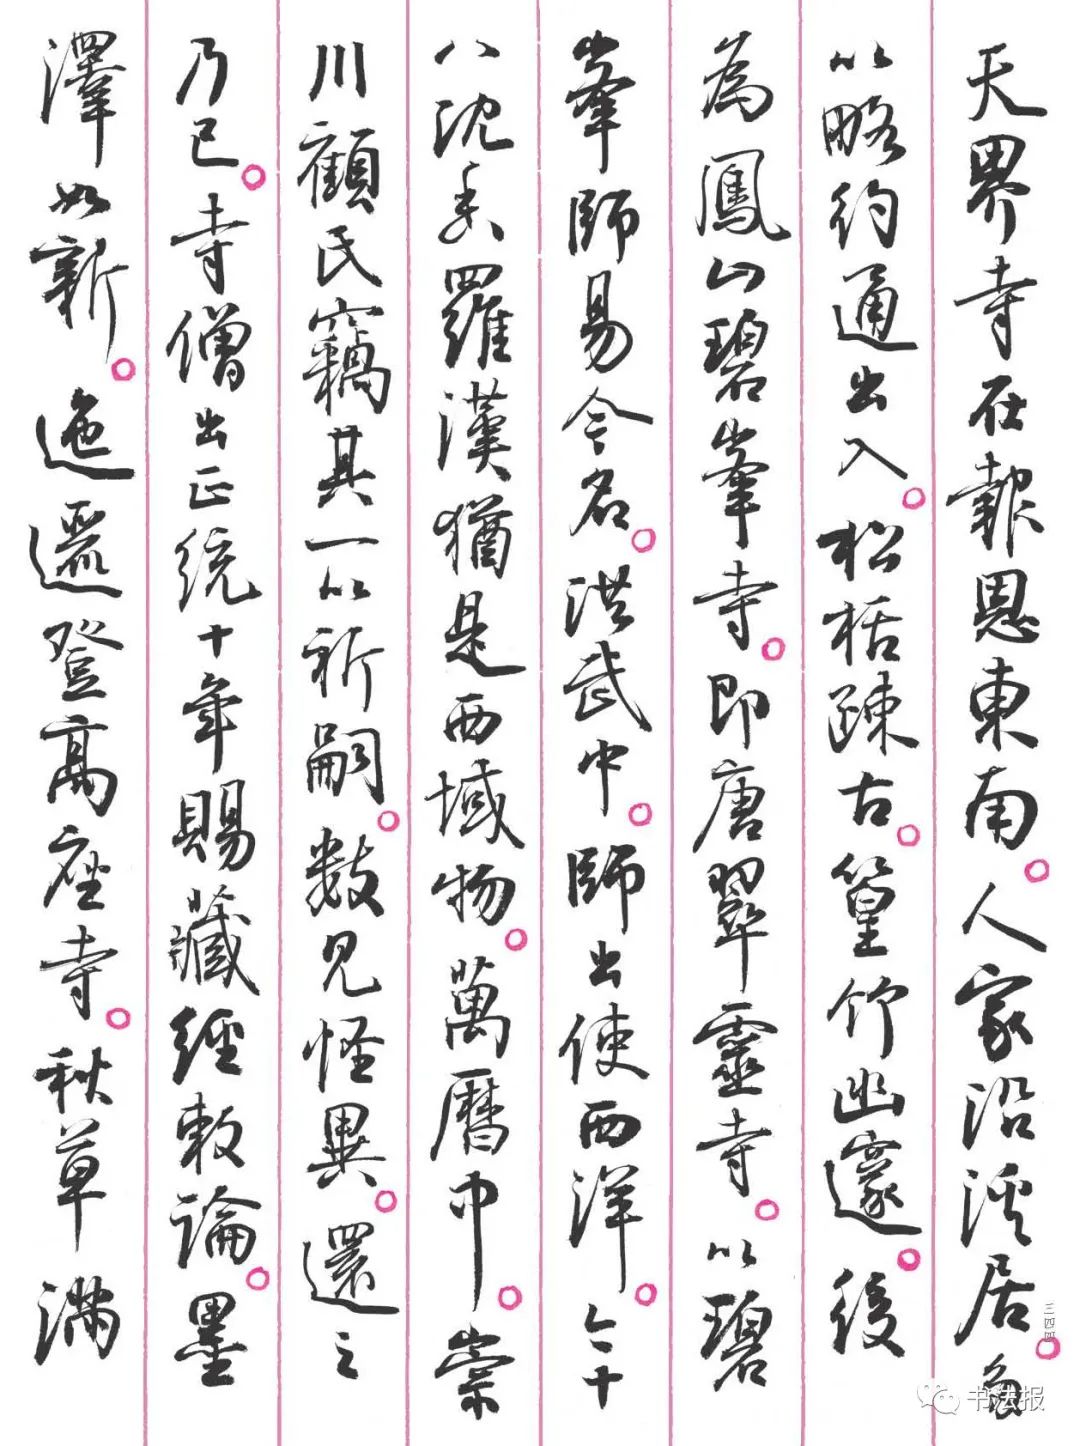 天界寺在報恩東南。人家沿溪居。多
以略約通出入。松栝疎古。篁竹幽邃。後
為鳳山碧峯寺。即唐翠靈寺。以碧
峯師易今名。洪武中。師出使西洋。
八沈香羅漢猶是西域物。萬曆中。崇
川顧氏竊其一以祈嗣。數見怪異。還之
乃已。寺僧出正統十年賜藏經敕論。墨
澤如新。迤邐登高座寺。秋草滿
三四四
书法报